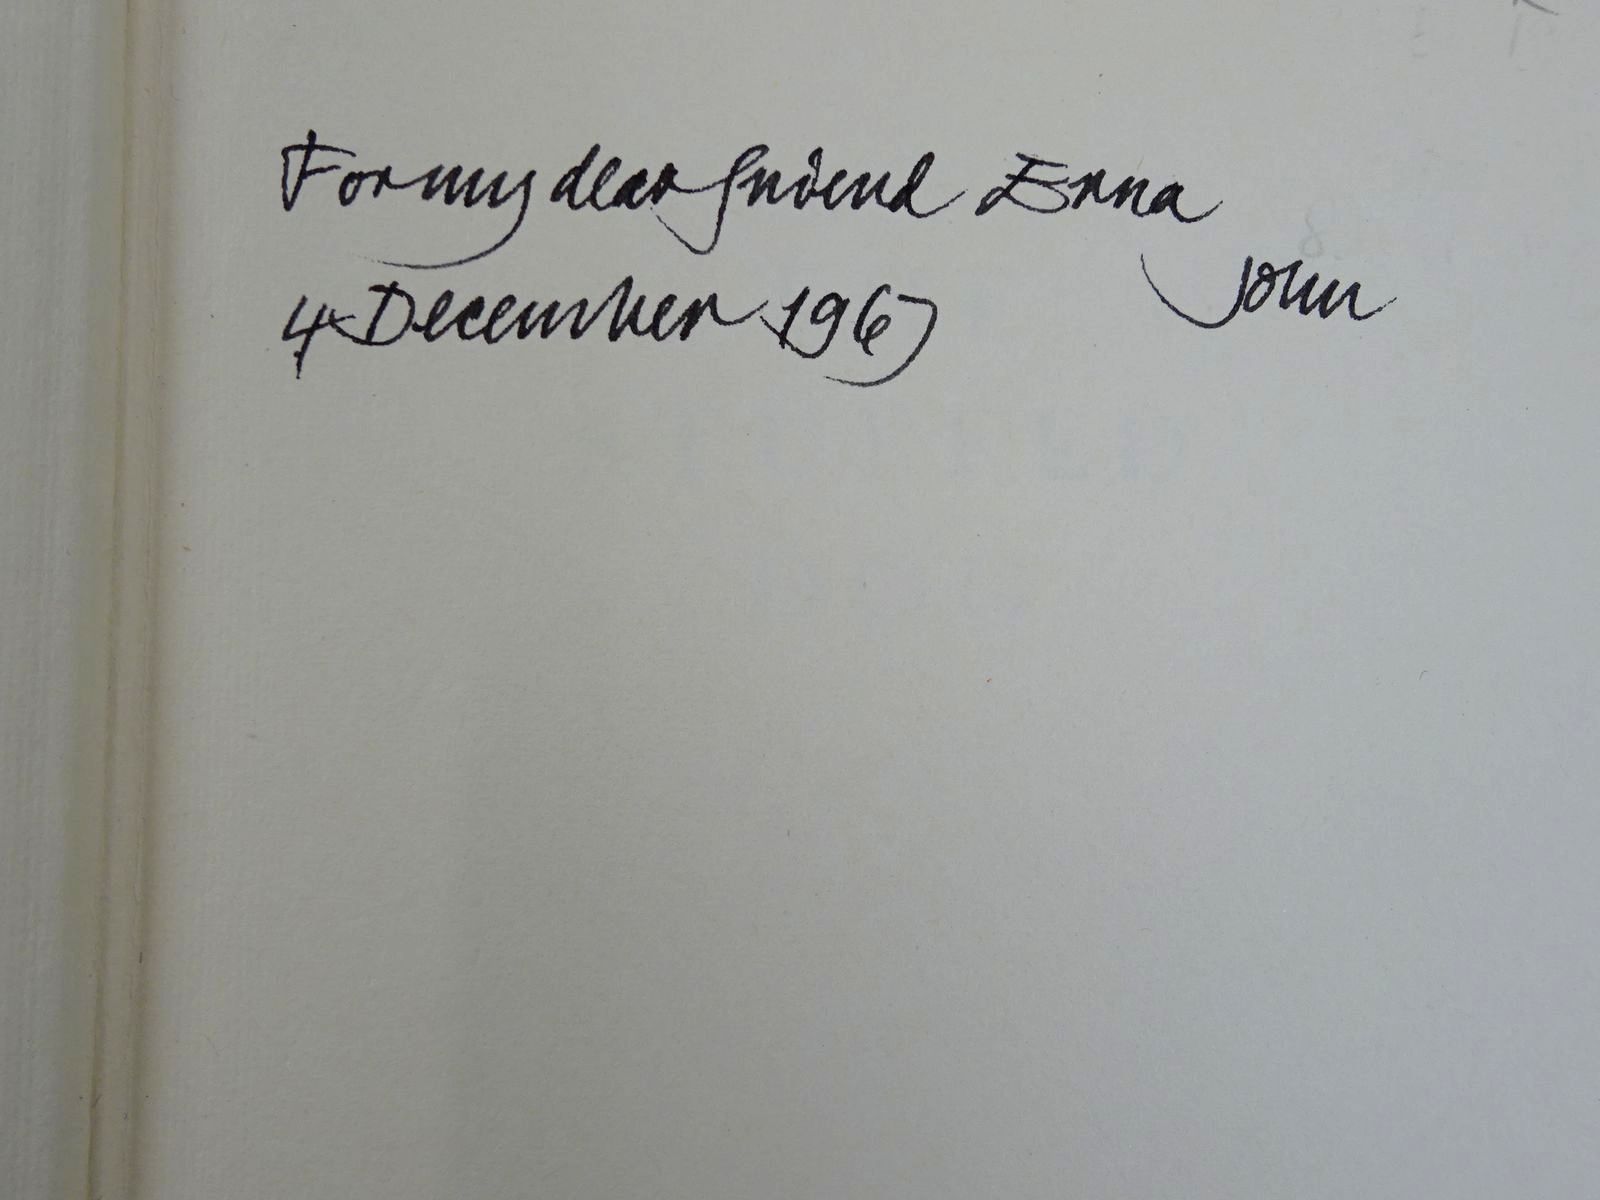 For my dear friend Erna
John
4 December 1967